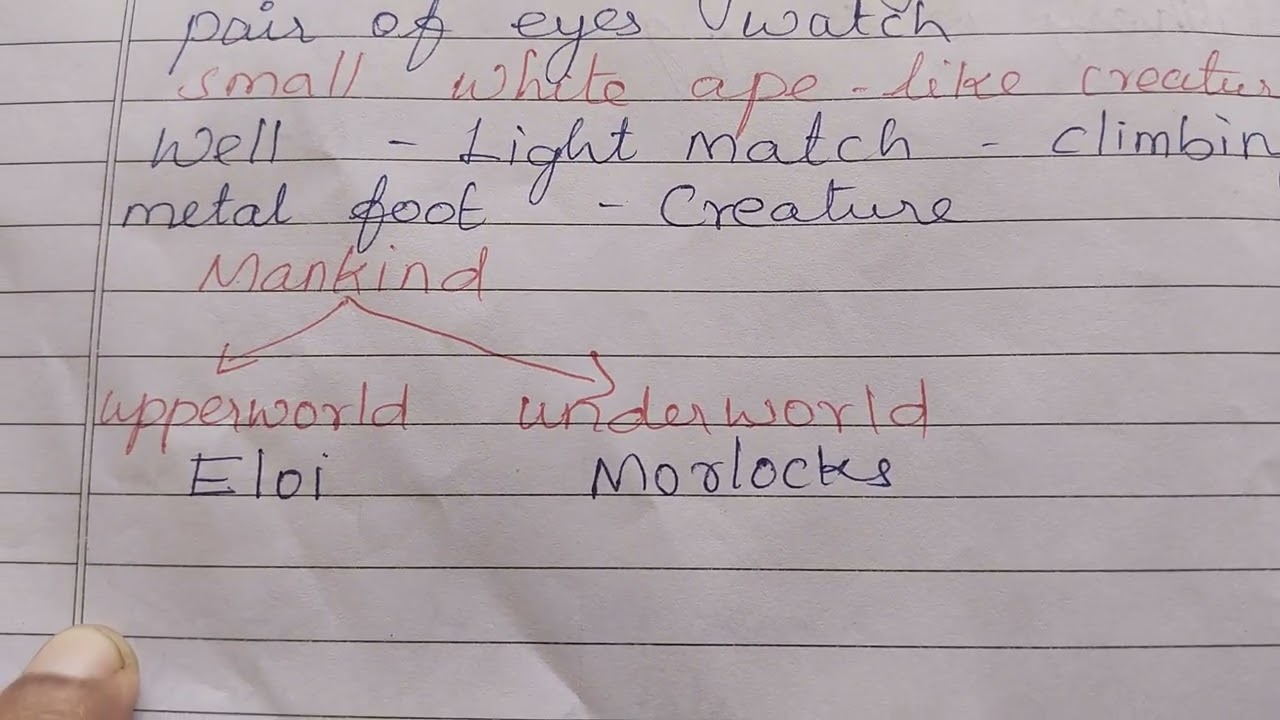 pair of eyes watch
small white ape-like creatur
Well - Light match - climbin
metal foot - Creature
Mankind
upperworld underworld
Eloi Morlocks